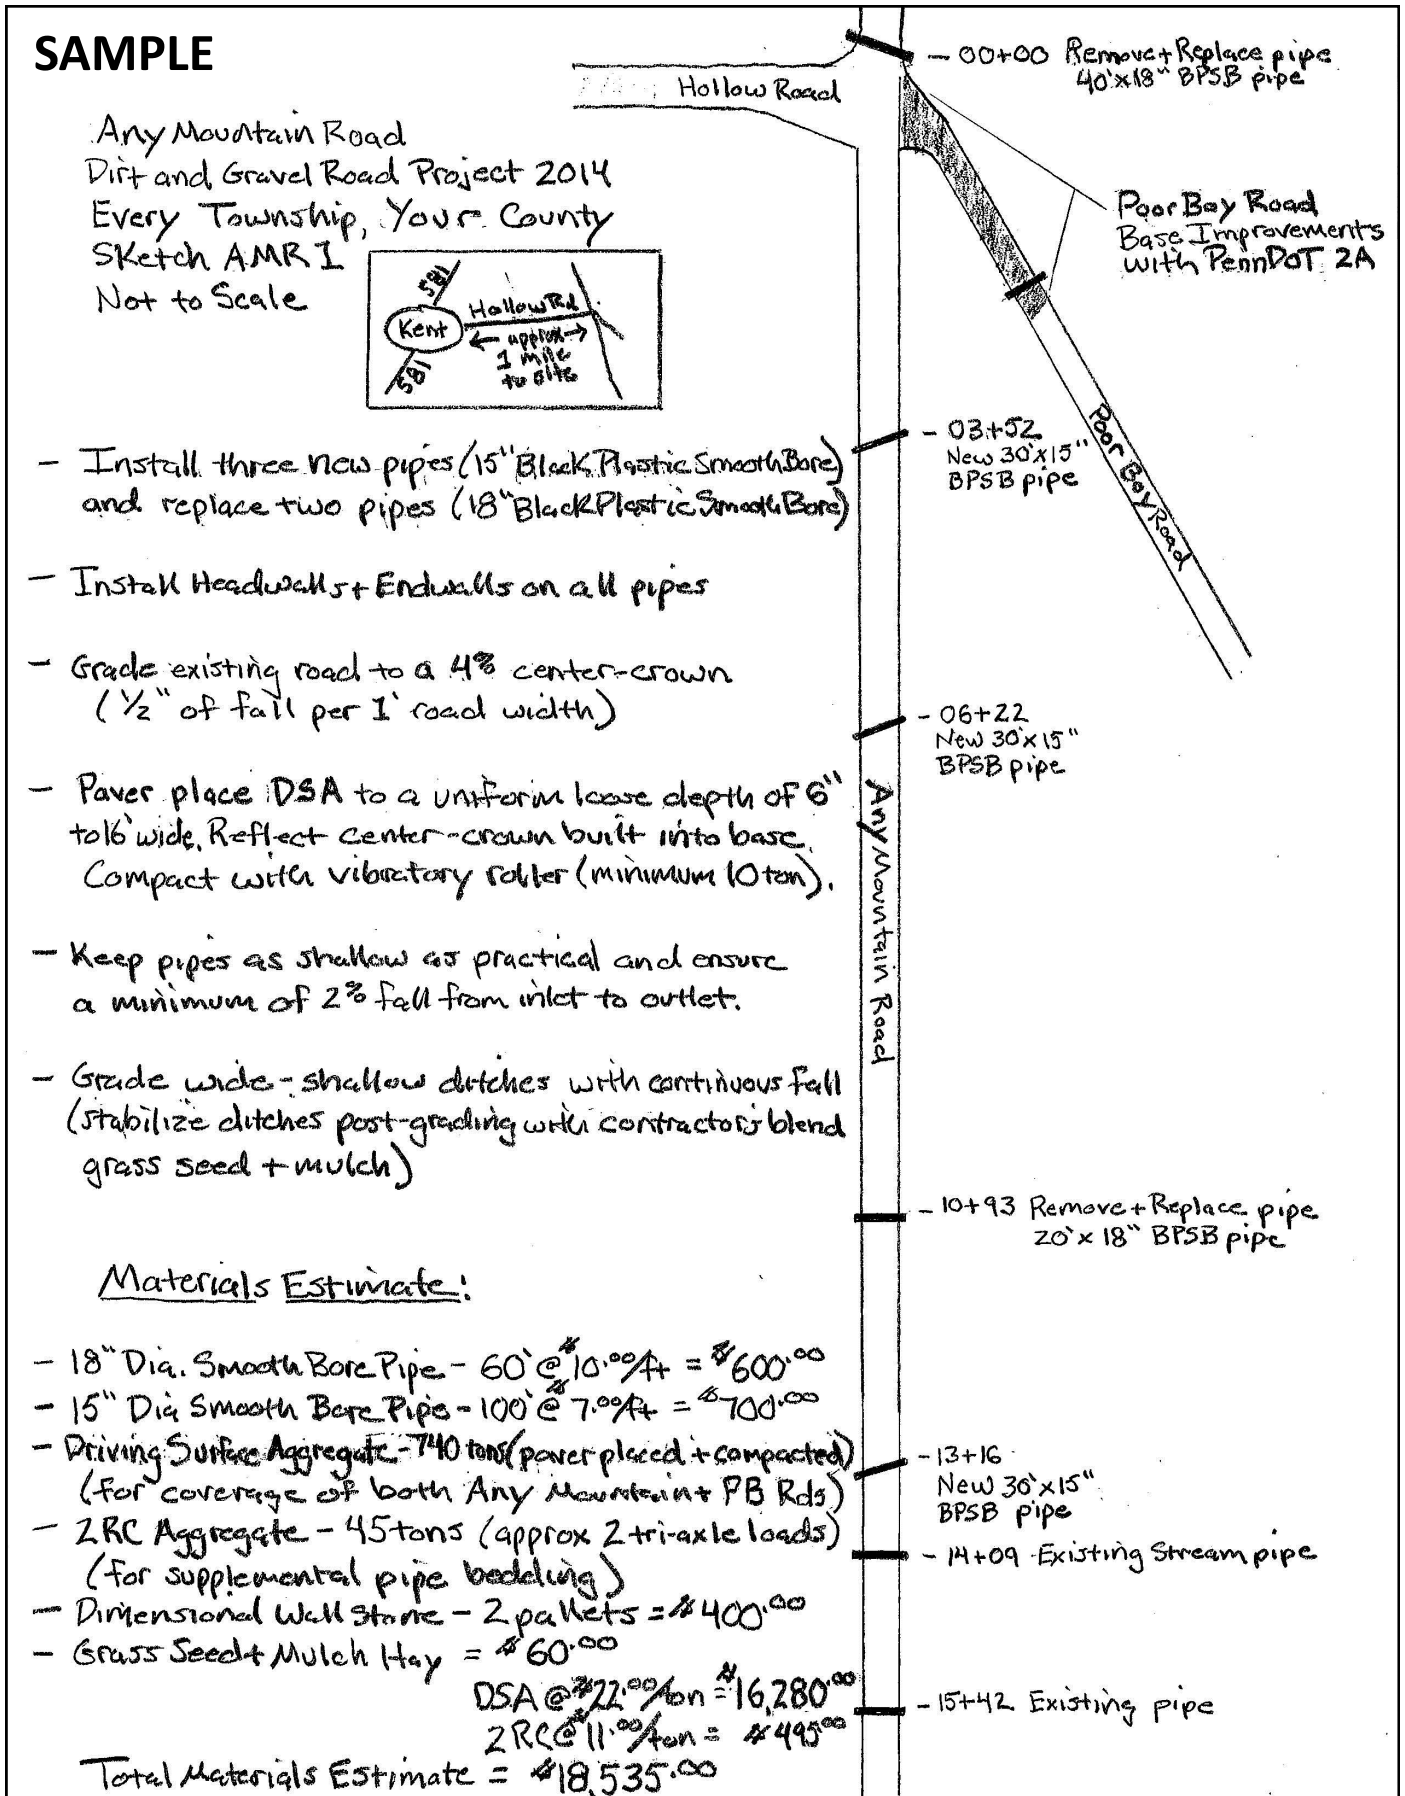 SAMPLE
Any Mountain Road
Dirt and Gravel Road Project 2014
Every Township, Your County
Sketch AMR 1
Not to Scale
581
Kent
581
Hollow Rd
← approx →
1 mile
to site
- Install three new pipes (15" Black Plastic Smooth Bore)
and replace two pipes (18" Black Plastic Smooth Bore)
- Install Headwalls + Endwalls on all pipes
- Grade existing road to a 4% center-crown
(1/2" of fall per 1' road width)
- Paver place DSA to a uniform loose depth of 6"
to 16' wide. Reflect center-crown built into base.
Compact with vibratory roller (minimum 10 ton).
- Keep pipes as shallow as practical and ensure
a minimum of 2% fall from inlet to outlet.
- Grade wide-shallow ditches with continuous fall
(stabilize ditches post-grading with contractor's blend
grass seed + mulch)
Materials Estimate:
- 18" Dia. Smooth Bore Pipe - 60' @ $10.00/ft = $600.00
- 15" Dia Smooth Bore Pipe - 100' @ $7.00/ft = $700.00
- Driving Surface Aggregate - 740 tons (paver placed + compacted)
(for coverage of both Any Mountain + PB Rds)
- 2RC Aggregate - 45 tons (approx 2 tri-axle loads)
(for supplemental pipe bedding)
- Dimensional Wall Stone - 2 pallets = $400.00
- Grass Seed + Mulch Hay = $60.00
DSA @ $22.00/ton = $16,280.00
2RC @ $11.00/ton = $495.00
Total Materials Estimate = $18,535.00
Hollow Road
- 00+00 Remove + Replace pipe
40'x18" BPSB pipe
Poor Boy Road
Base Improvements
with PennDOT 2A
Poor Boy Road
- 03+52
New 30'x15"
BPSB pipe
- 06+22
New 30'x15"
BPSB pipe
Any Mountain Road
- 10+93 Remove + Replace pipe
20'x 18" BPSB pipe
- 13+16
New 30'x15"
BPSB pipe
- 14+09 - Existing Stream pipe
- 15+42 Existing pipe